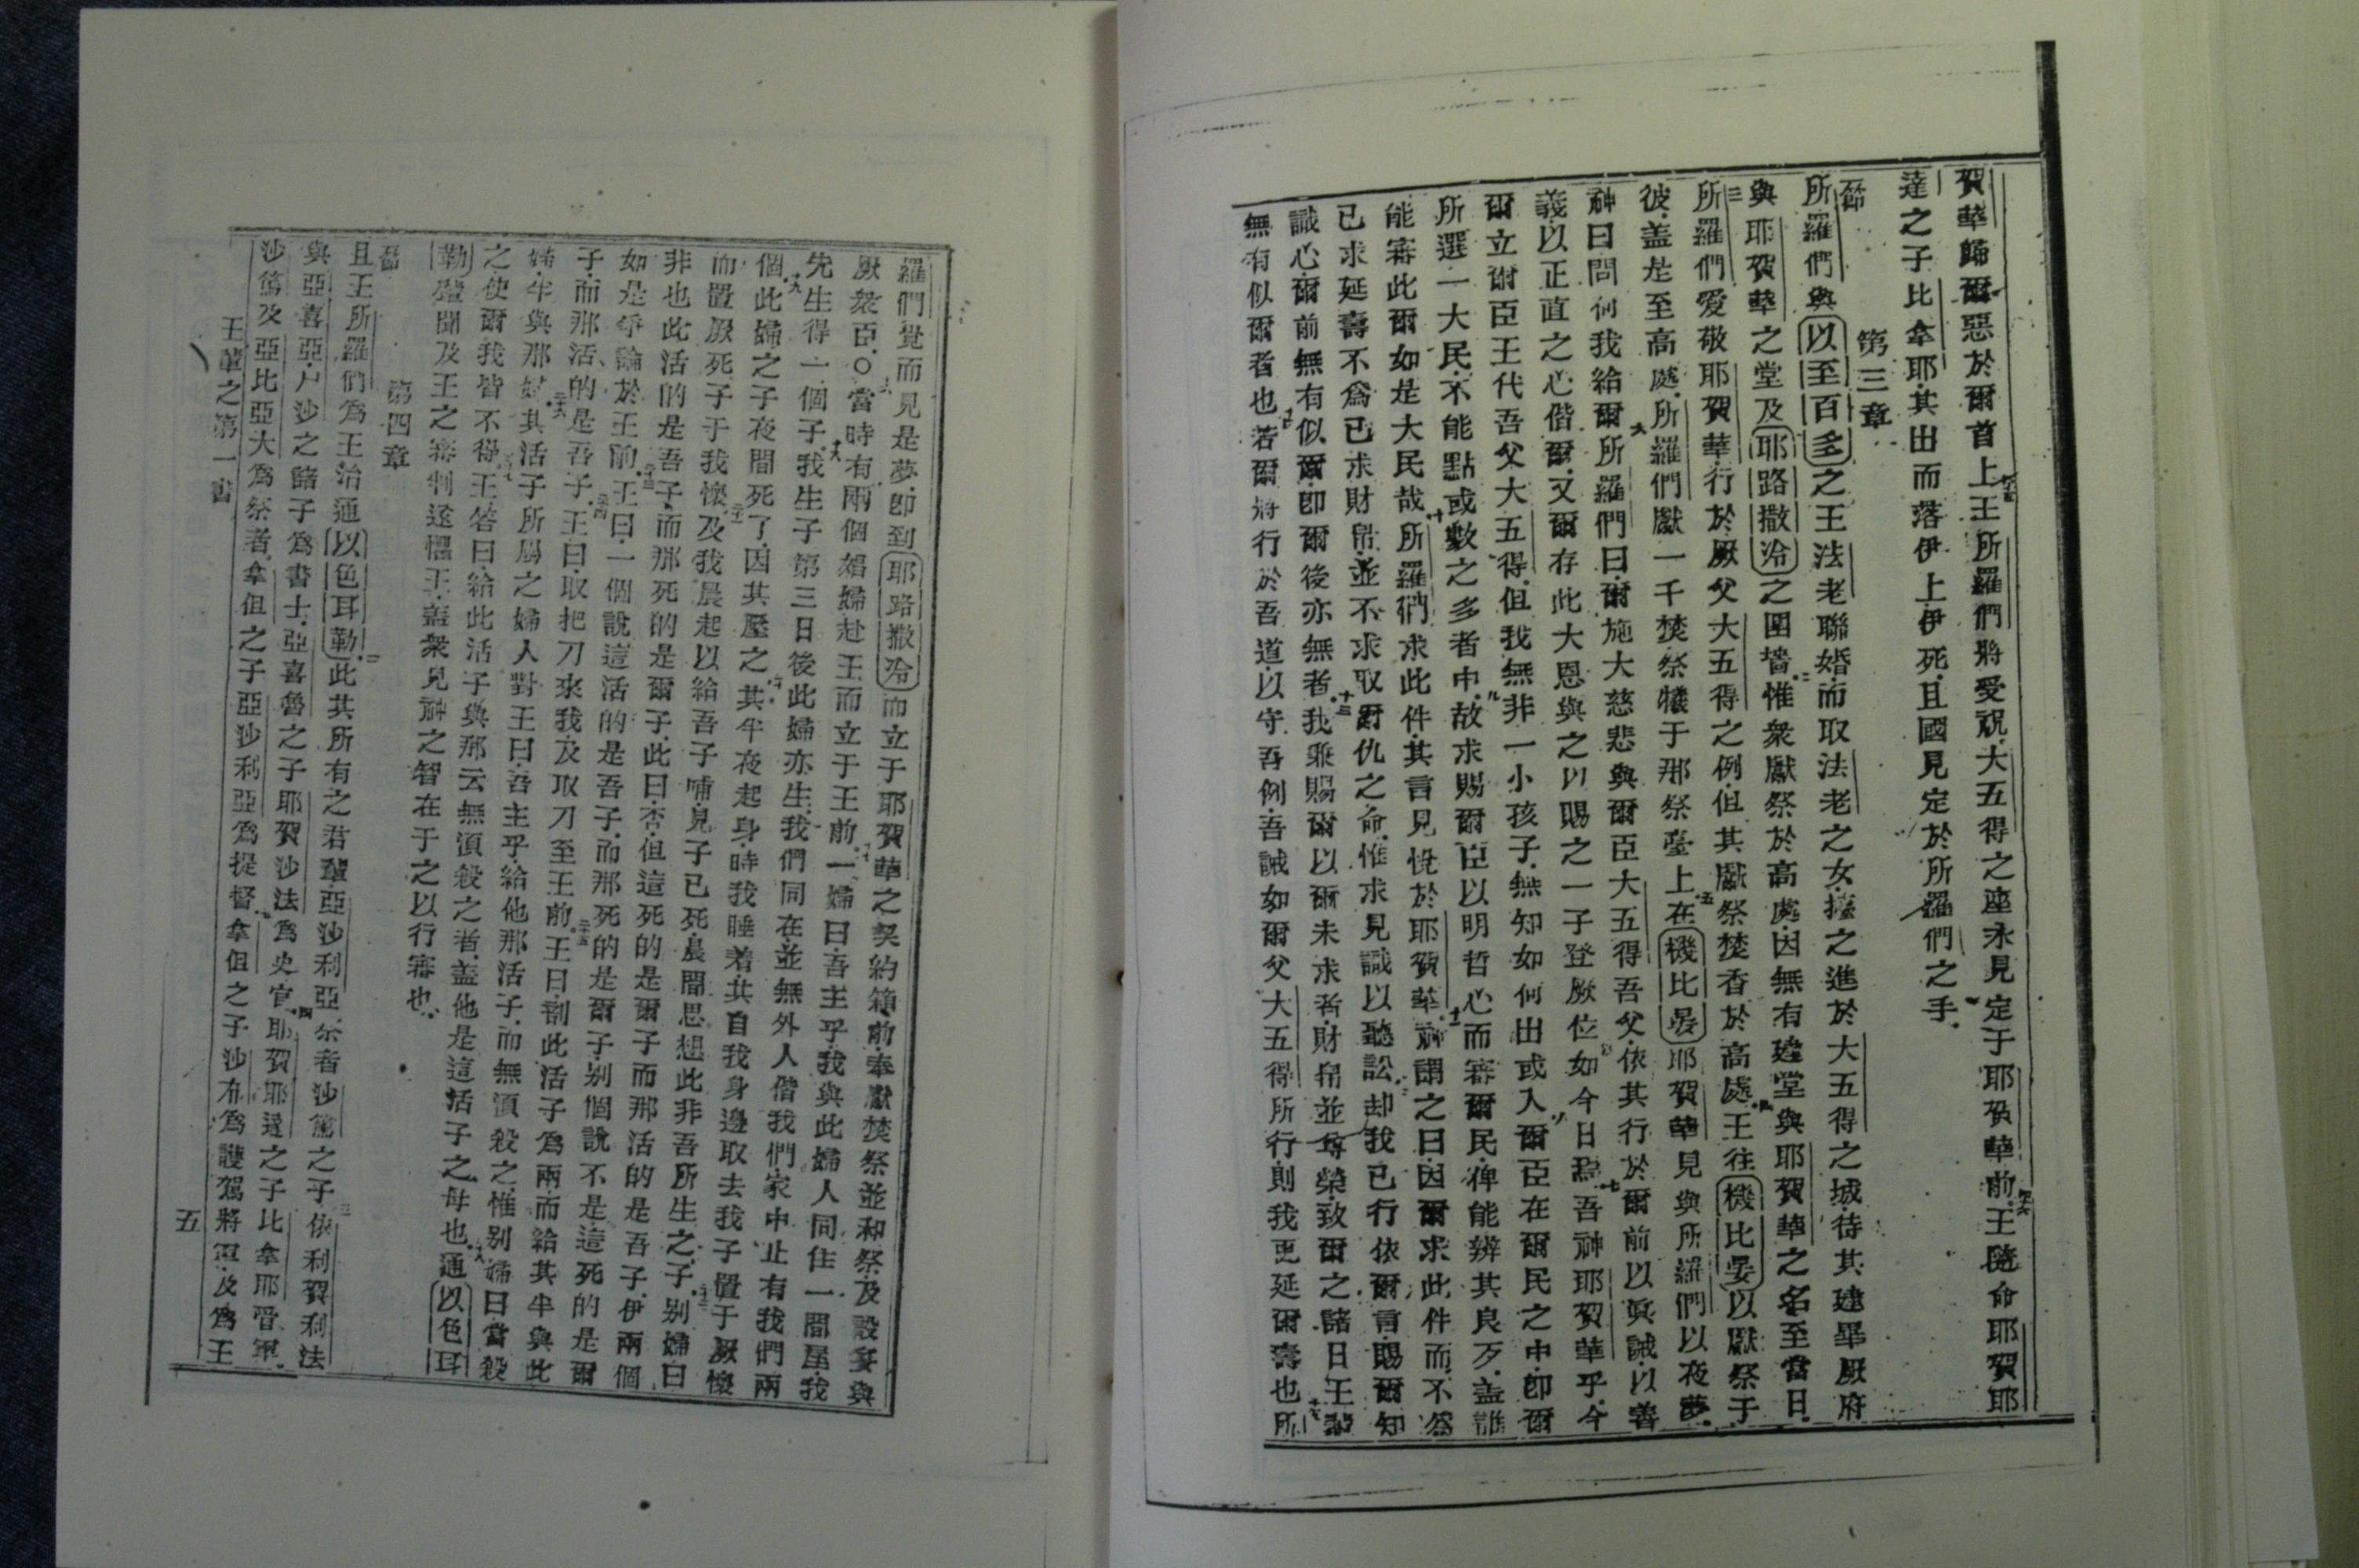 賀華歸爾惡於爾首上王所羅們將受祝大五得之座永見定于耶賀華前王隨命耶賀耶
達之子比拿耶其出而落伊上伊死且國見定於所羅們之手
第三章
節
所羅們與以至百多之王法老聯婚而取法老之女接之進於大五得之城待其建畢厥府
與耶賀華之堂及耶路撒冷之圍墻二惟衆獻祭於高處因無有建堂與耶賀華之名至當日
三所羅們愛敬耶賀華行於厥父大五得之例但其獻祭焚香於高處四王往機比晏以獻祭于
彼蓋是至高處所羅們獻一千焚祭犧于那祭臺上五在機比晏耶賀華見與所羅們以夜夢
神曰問何我給爾六所羅們曰爾施大慈悲與爾臣大五得吾父依其行於爾前以眞誠以善
義以正直之心偕爾又爾存此大恩與之以賜之一子登厥位如今日焉七吾神耶賀華乎今
爾立爾臣王代吾父大五得但我無非一小孩子無知如何出或入八爾臣在爾民之中卽爾
所選一大民不能點或數之多者中九故求賜爾臣以明哲心而審爾民俾能辨其良歹蓋誰
能審此爾如是大民哉十所羅們求此件其言見悅於耶賀華十一神謂之曰因爾求此件而不爲
已求延壽不爲已求財帛並不求取爾仇之命惟求見識以聽訟十二却我已行依爾言賜爾知
識心爾前無有似爾卽爾後亦無者十三我兼賜爾以爾未求者財帛並尊榮致爾之諸日王輩
無有似爾者也十四若爾將行於吾道以守吾例吾誡如爾父大五得所行則我更延爾壽也十五所
羅們覺而見是夢卽到耶路撒冷而立于耶賀華之契約箱前奉獻焚祭並和祭及設筵與
厥衆臣○十六當時有兩個娼婦赴王而立于王前十七一婦曰吾主乎我與此婦人同住一間屋我
先生得一個子十八我生子第三日後此婦亦生我們同在並無外人偕我們家中止有我們兩
個十九此婦之子夜間死了因其壓之二十其半夜起身時我睡着其自我身邊取去我子置于厥懷
而置厥死子于我懷二十一及我晨起以給吾子哺見子已死晨間思想此非吾所生之子二十二別婦曰
非也此活的是吾子而那死的是爾子此曰否但這死的是爾子而那活的是吾子伊兩個
如是爭論於王前二十三王曰一個說這活的是吾子而那死的是爾子別個說不是這死的是爾
子而那活的是吾子二十四王曰取把刀來我及取刀至王前二十五王曰剖此活子爲兩而給其半與此
婦半與那婦二十六其活子所屬之婦人對王曰吾主乎給他那活子而無湏殺之惟別婦曰當殺
之使爾我皆不得二十七王答曰給此活子與那云無湏殺之者蓋他是這活子之母也二十八通以色耳
勒聞及王之審判遂懼王蓋衆見神之智在于之以行審也
第四章
節
且王所羅們爲王治通以色耳勒二此其所有之君輩亞沙利亞祭者沙篤之子三依利賀利法
與亞喜亞戶沙之諸子爲書士亞喜魯之子耶賀沙法爲史官四耶賀耶達之子比拿耶管軍
沙篤及亞比亞大爲祭者五拿但之子亞沙利亞爲提督拿但之子沙布爲護駕將軍及爲王
王輩之第一書
五